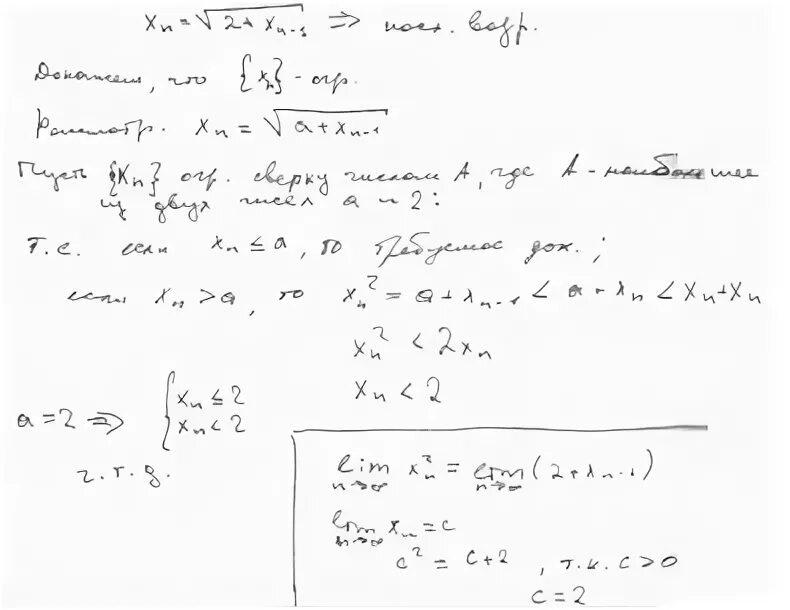 xₙ = √(2 + xₙ₋₁) ⇒ посл. возр.
Докажем, что {xₙ} - огр.
Рассмотр. xₙ = √(a + xₙ₋₁)
Пусть {xₙ} огр. сверху числом A, где A - наибольшее
из двух чисел a и 2:
т.е. если xₙ ≤ a, то требуемое док.;
если xₙ > a, то xₙ² = a + xₙ₋₁ < a + xₙ < xₙ + xₙ
xₙ² < 2xₙ
xₙ < 2
a = 2 ⇒ { xₙ ≤ 2
xₙ < 2
ч.т.д.
lim n→∞ xₙ² = lim n→∞ (2 + xₙ₋₁)
lim n→∞ xₙ = c
c² = c + 2, т.к. c > 0
c = 2